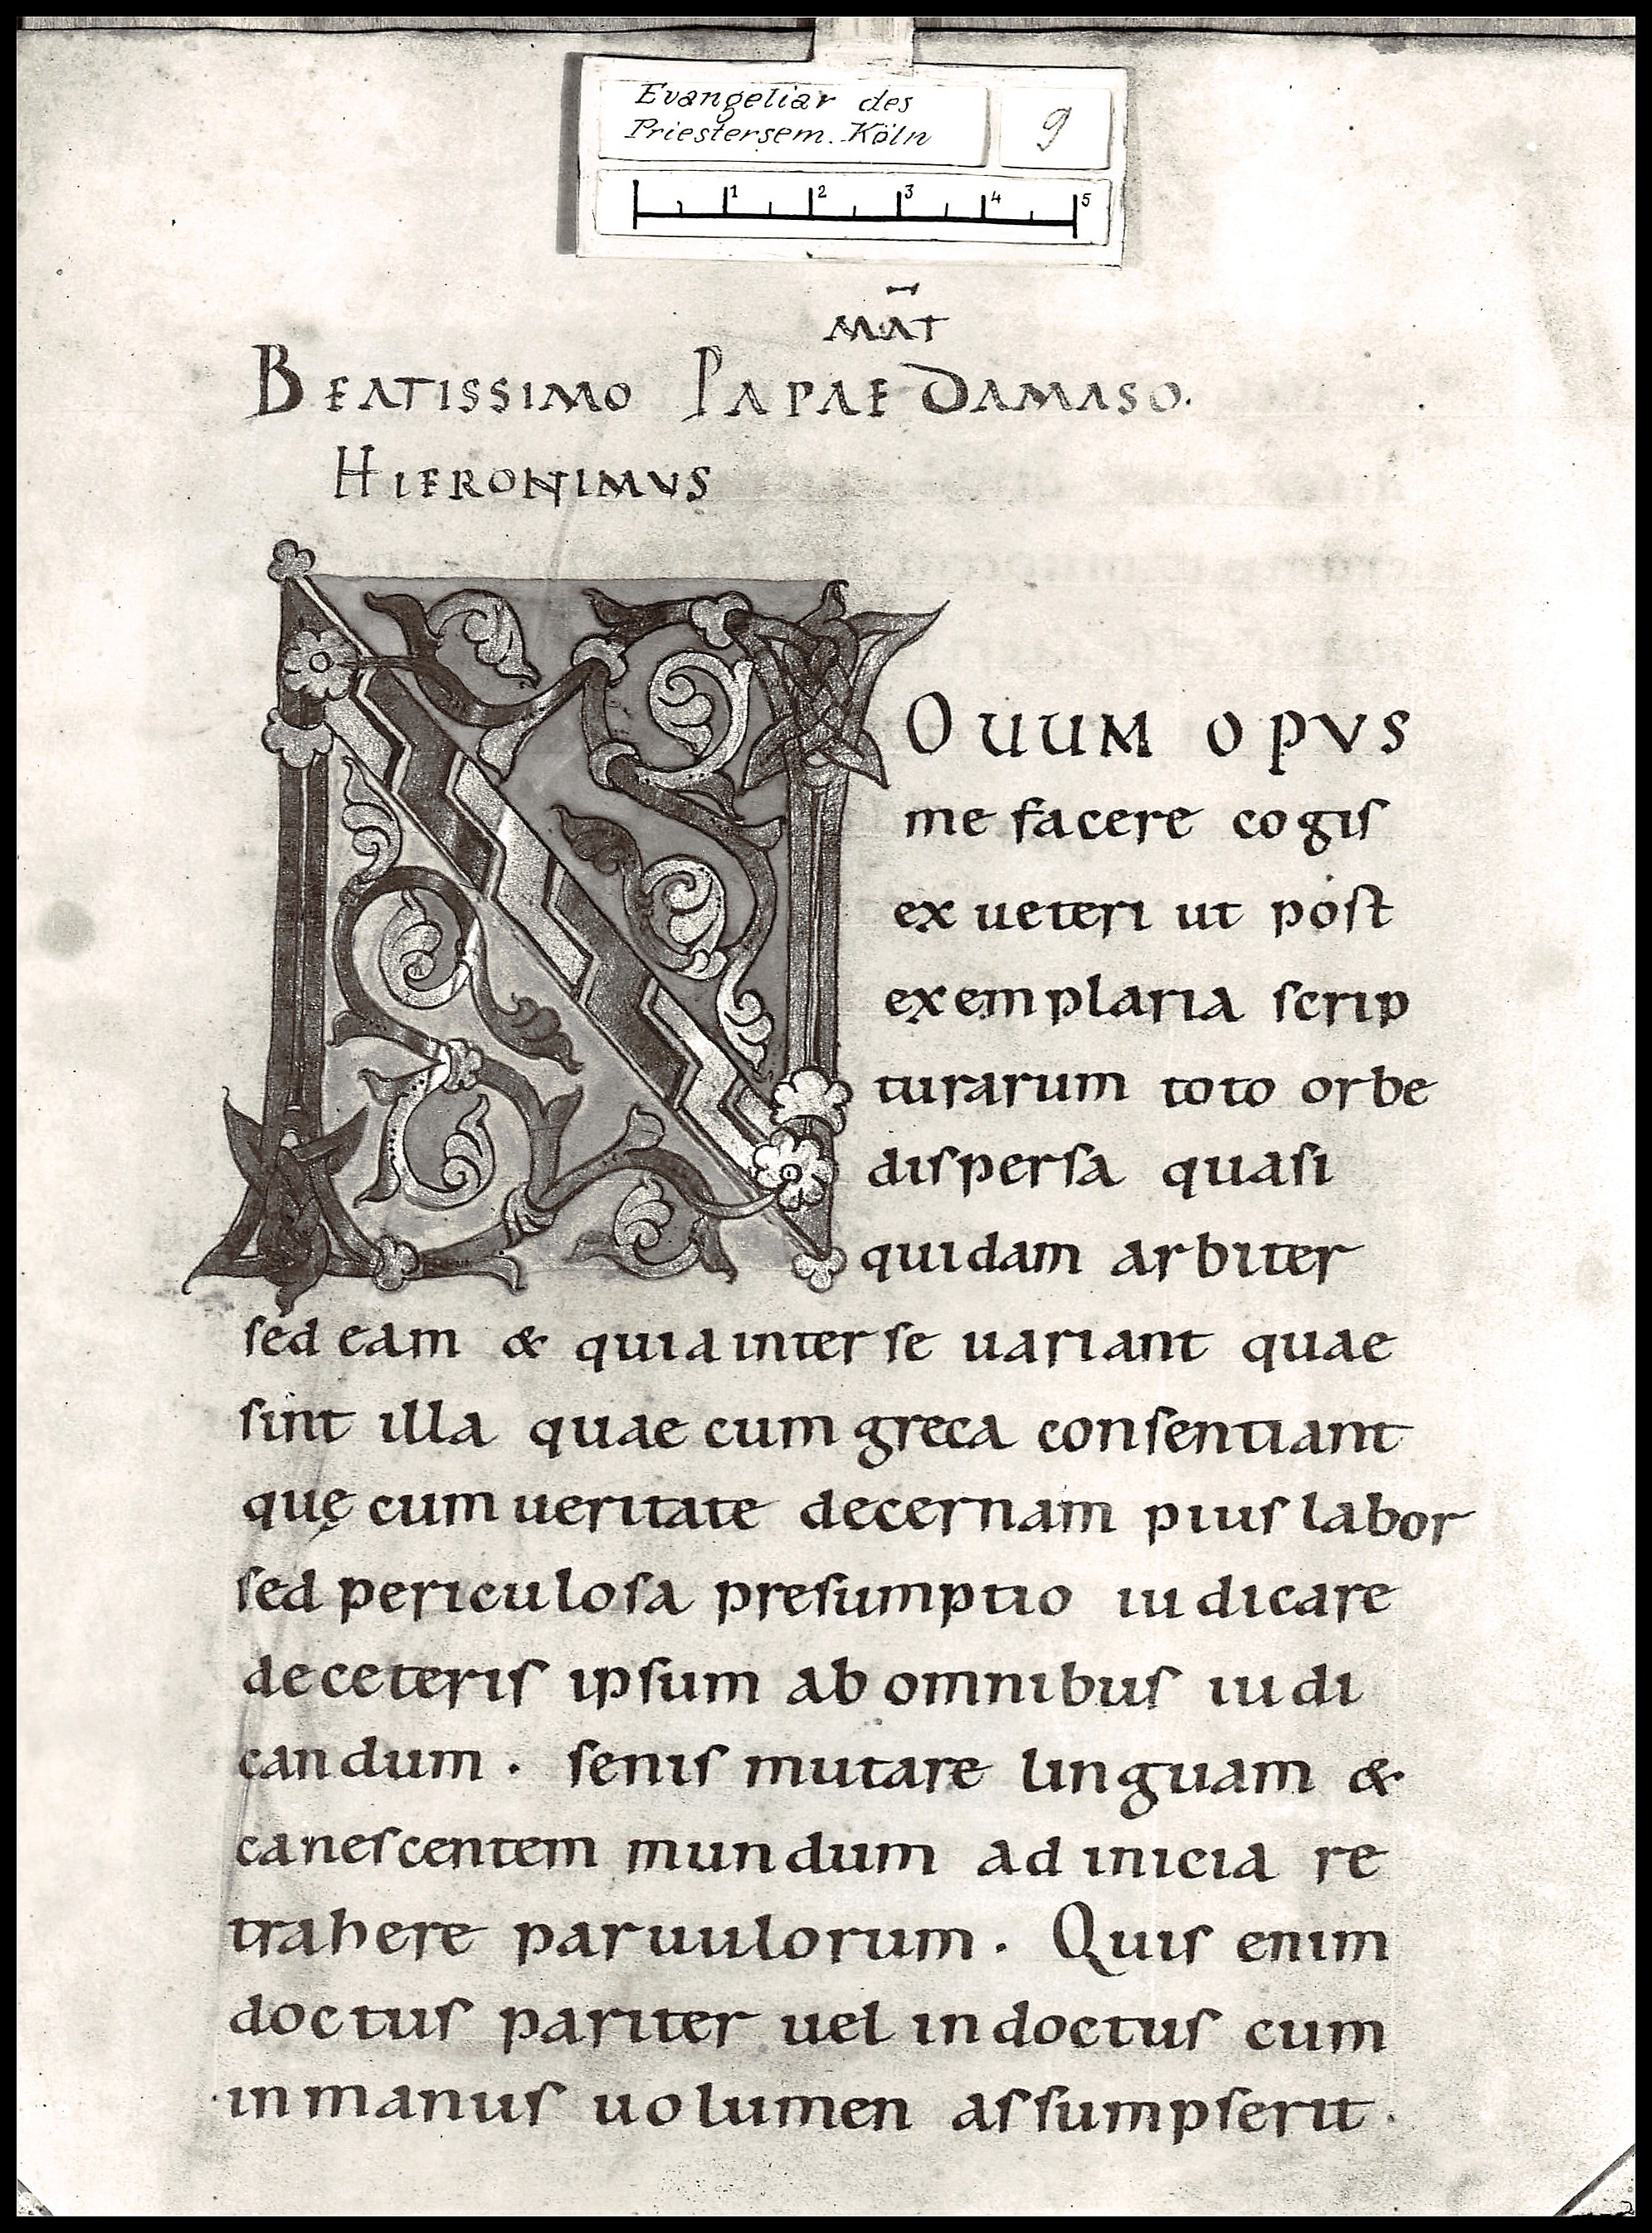 Evangeliar des
Priestersem. Köln
9
1 2 3 4 5
MAT
BEATISSIMO PAPAE DAMASO.
HIERONIMVS
NOUUM OPVS
me facere cogiſ
ex ueteri ut poſt
exemplaria ſcrip
turarum toto orbe
diſperſa quaſi
quidam arbiter
ſed eam & quia inter ſe uariant quae
ſint illa quae cum greca conſentiant
quę cum ueritate decernam piuſ labor
ſed periculoſa preſumptio iudicare
de ceteriſ ipſum ab omnibuſ iudi
candum. ſeniſ mutare linguam &
caneſcentem mundum ad inicia re
trahere paruulorum. Quiſ enim
doctuſ pariter uel indoctuſ cum
in manuſ uolumen aſſumpſerit.